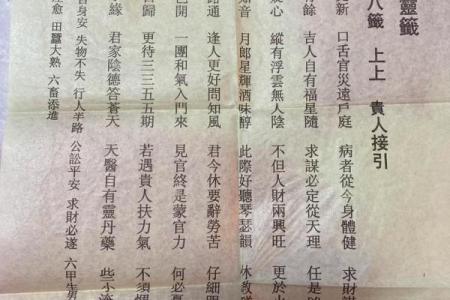 靈籤
八籤 上上 貴人接引
新 口舌官災遠戶庭 病者從今身體健 求財
有餘 吉人自有福星隨 求謀必定從天理 任是
疑心 縱有浮雲無人陰 不但人財兩興旺 更於
知音 月郎星輝酒味醇 此際好聽琴瑟韻 休教
路通 逢人更好問知風 君今休要辭勞苦 仔細
已開 一團和氣入門來 見官終是蒙官力 何必
日歸 更待三三五五期 若遇貴人扶力氣 不須
緣 君家陰德答蒼天 天醫自有靈丹藥 些少
身安 失物不失 行人半路 公訟平安 求財必遂 六甲生男
愈 田蠶大熟 六畜添進